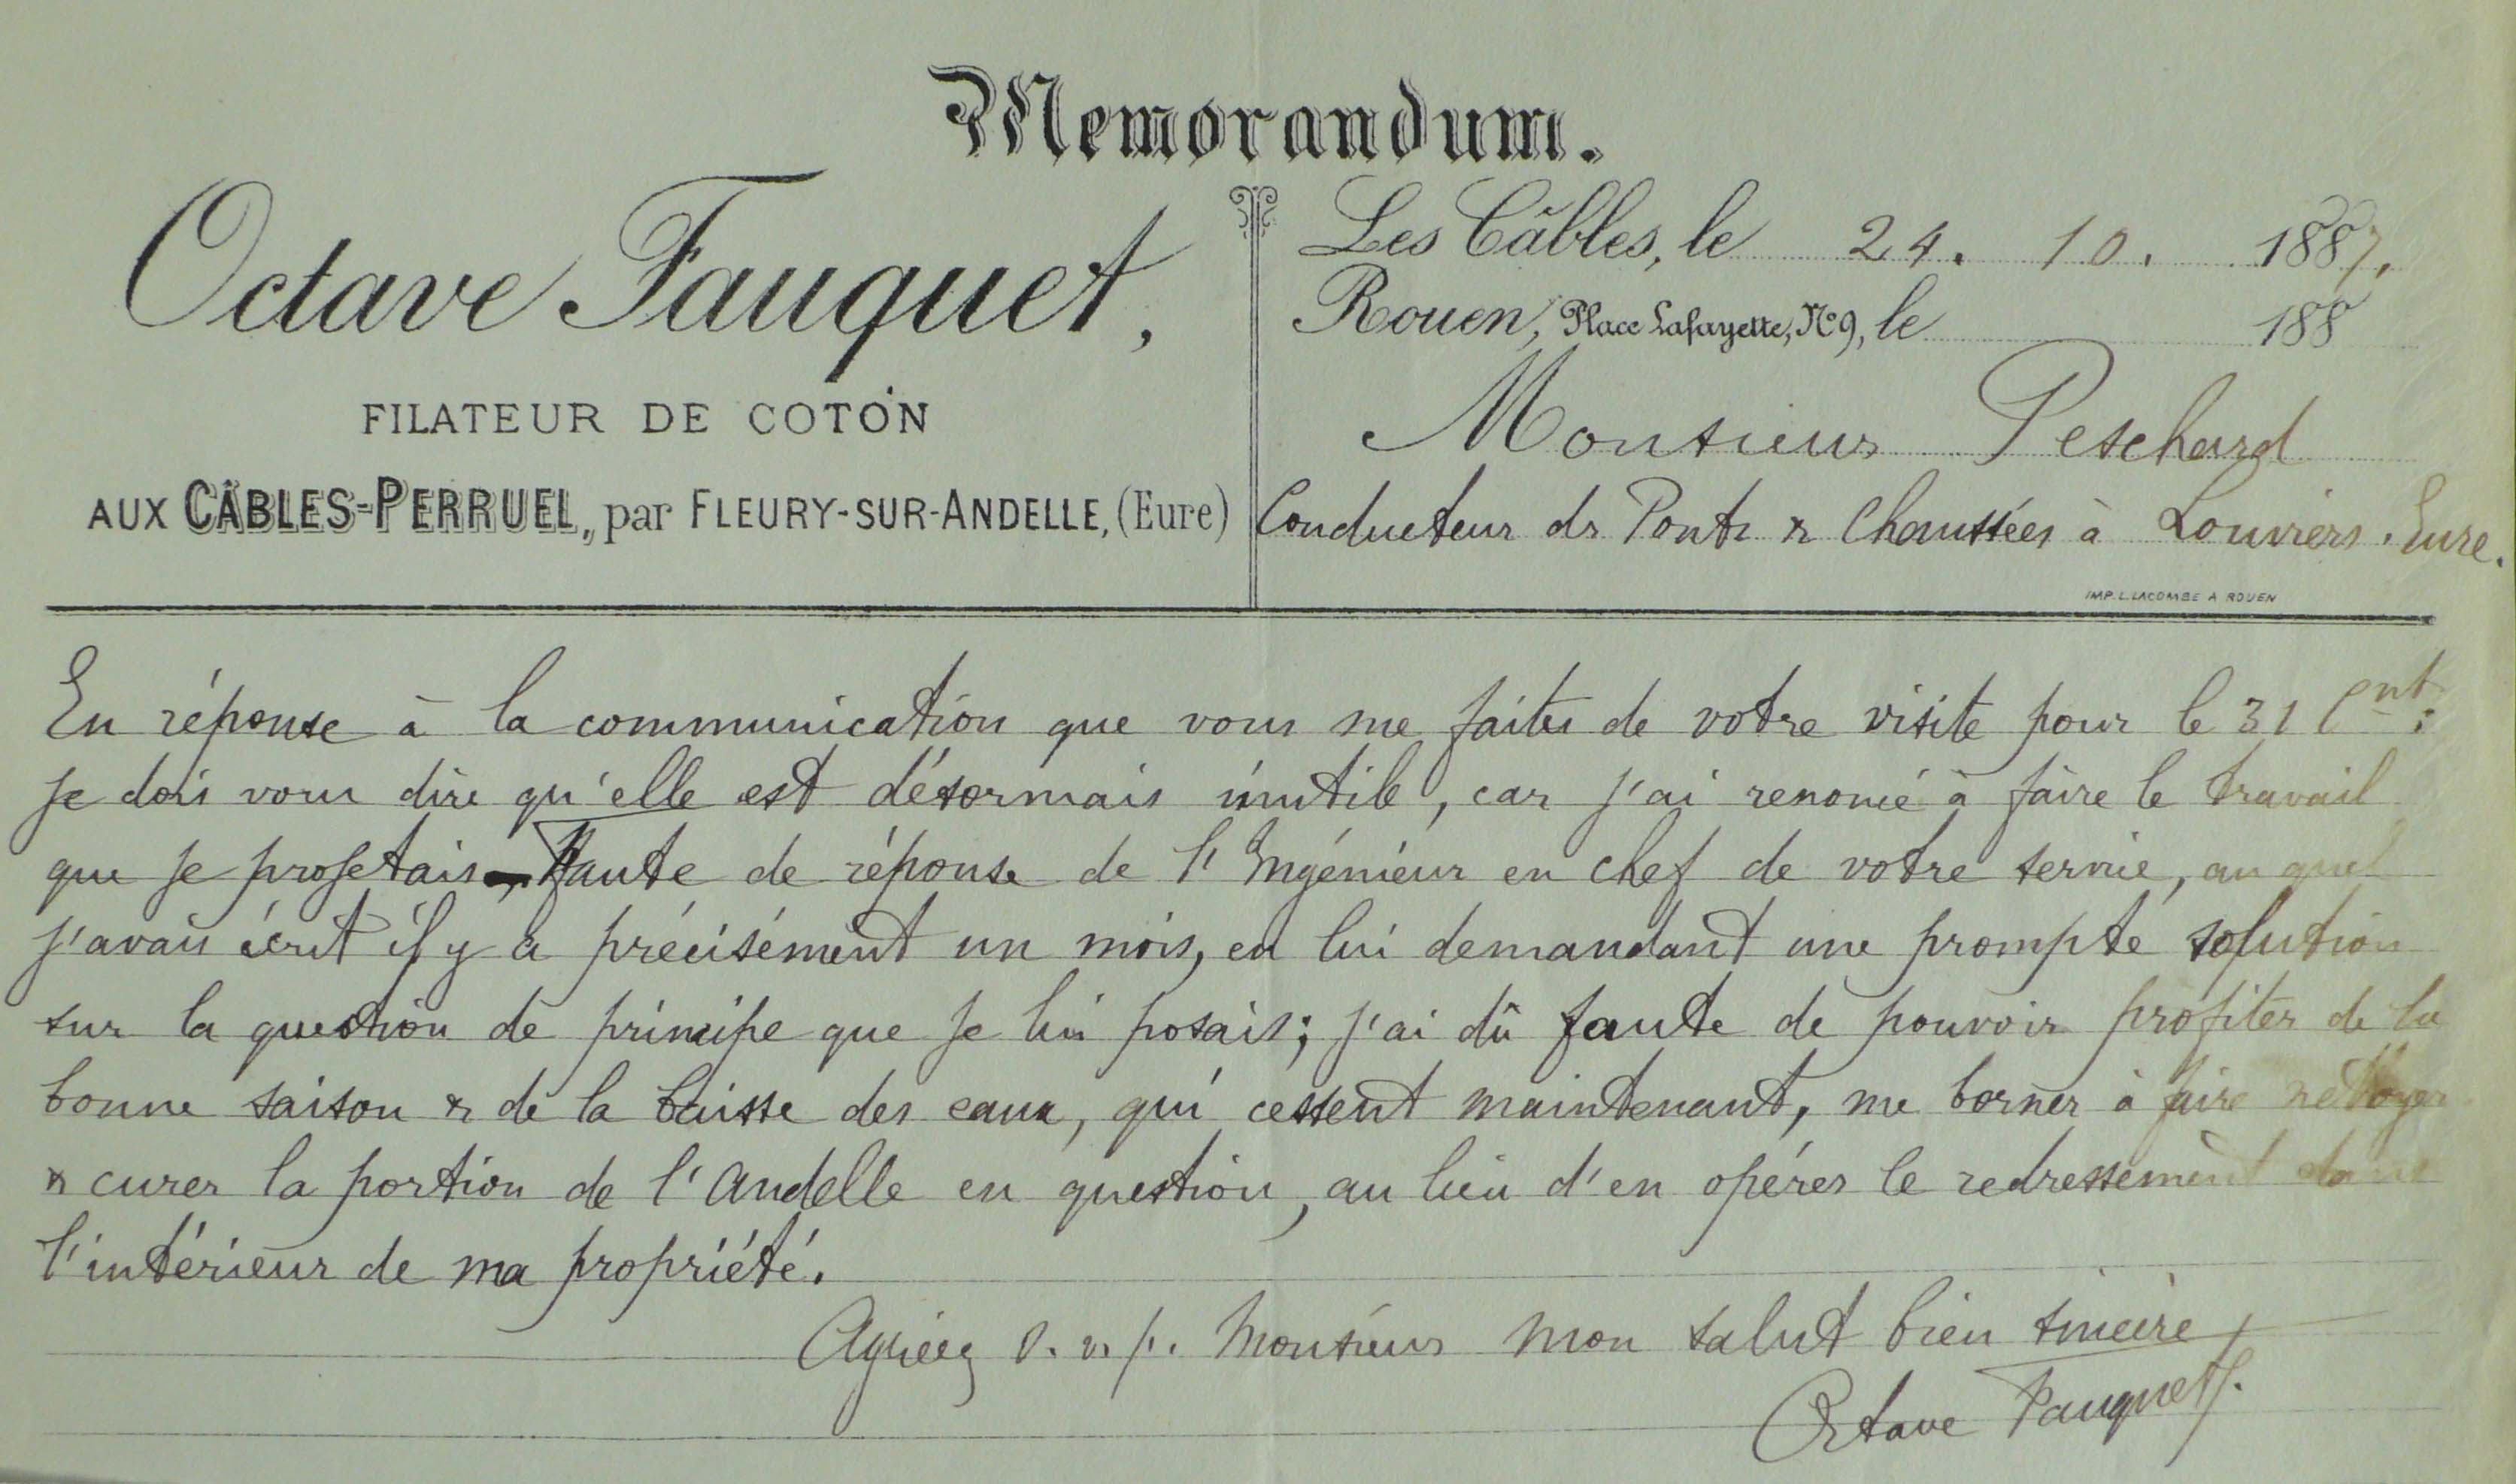 Memorandum.
Octave Fauquet,
FILATEUR DE COTON
AUX CÂBLES-PERRUEL, par FLEURY-SUR-ANDELLE, (Eure)
Les Câbles, le 24. 10. 1887.
Rouen, Place Lafayette, N° 9, le 188
Monsieur Peschard
Conducteur ds Ponts & Chaussées à Louviers. Eure.
IMP. L. LACOMBE A ROUEN
En réponse à la communication que vous me faites de votre visite pour le 31 Cnt:
Je dois vous dire qu'elle est désormais inutile, car j'ai renoncé à faire le travail
que je projetais, faute de réponse de l'Ingénieur en chef de votre service, auquel
j'avais écrit il y a précisément un mois, en lui demandant une prompte solution
sur la question de principe que je lui posais; j'ai dû faute de pouvoir profiter de la
bonne saison & de la baisse des eaux, qui cessent maintenant, me borner à faire nettoyer
& curer la portion de l'Andelle en question, au lieu d'en opérer le redressement dans
l'intérieur de ma propriété.
Agréez s. v. p. Monsieur mon salut bien sincère
Octave Fauquet.